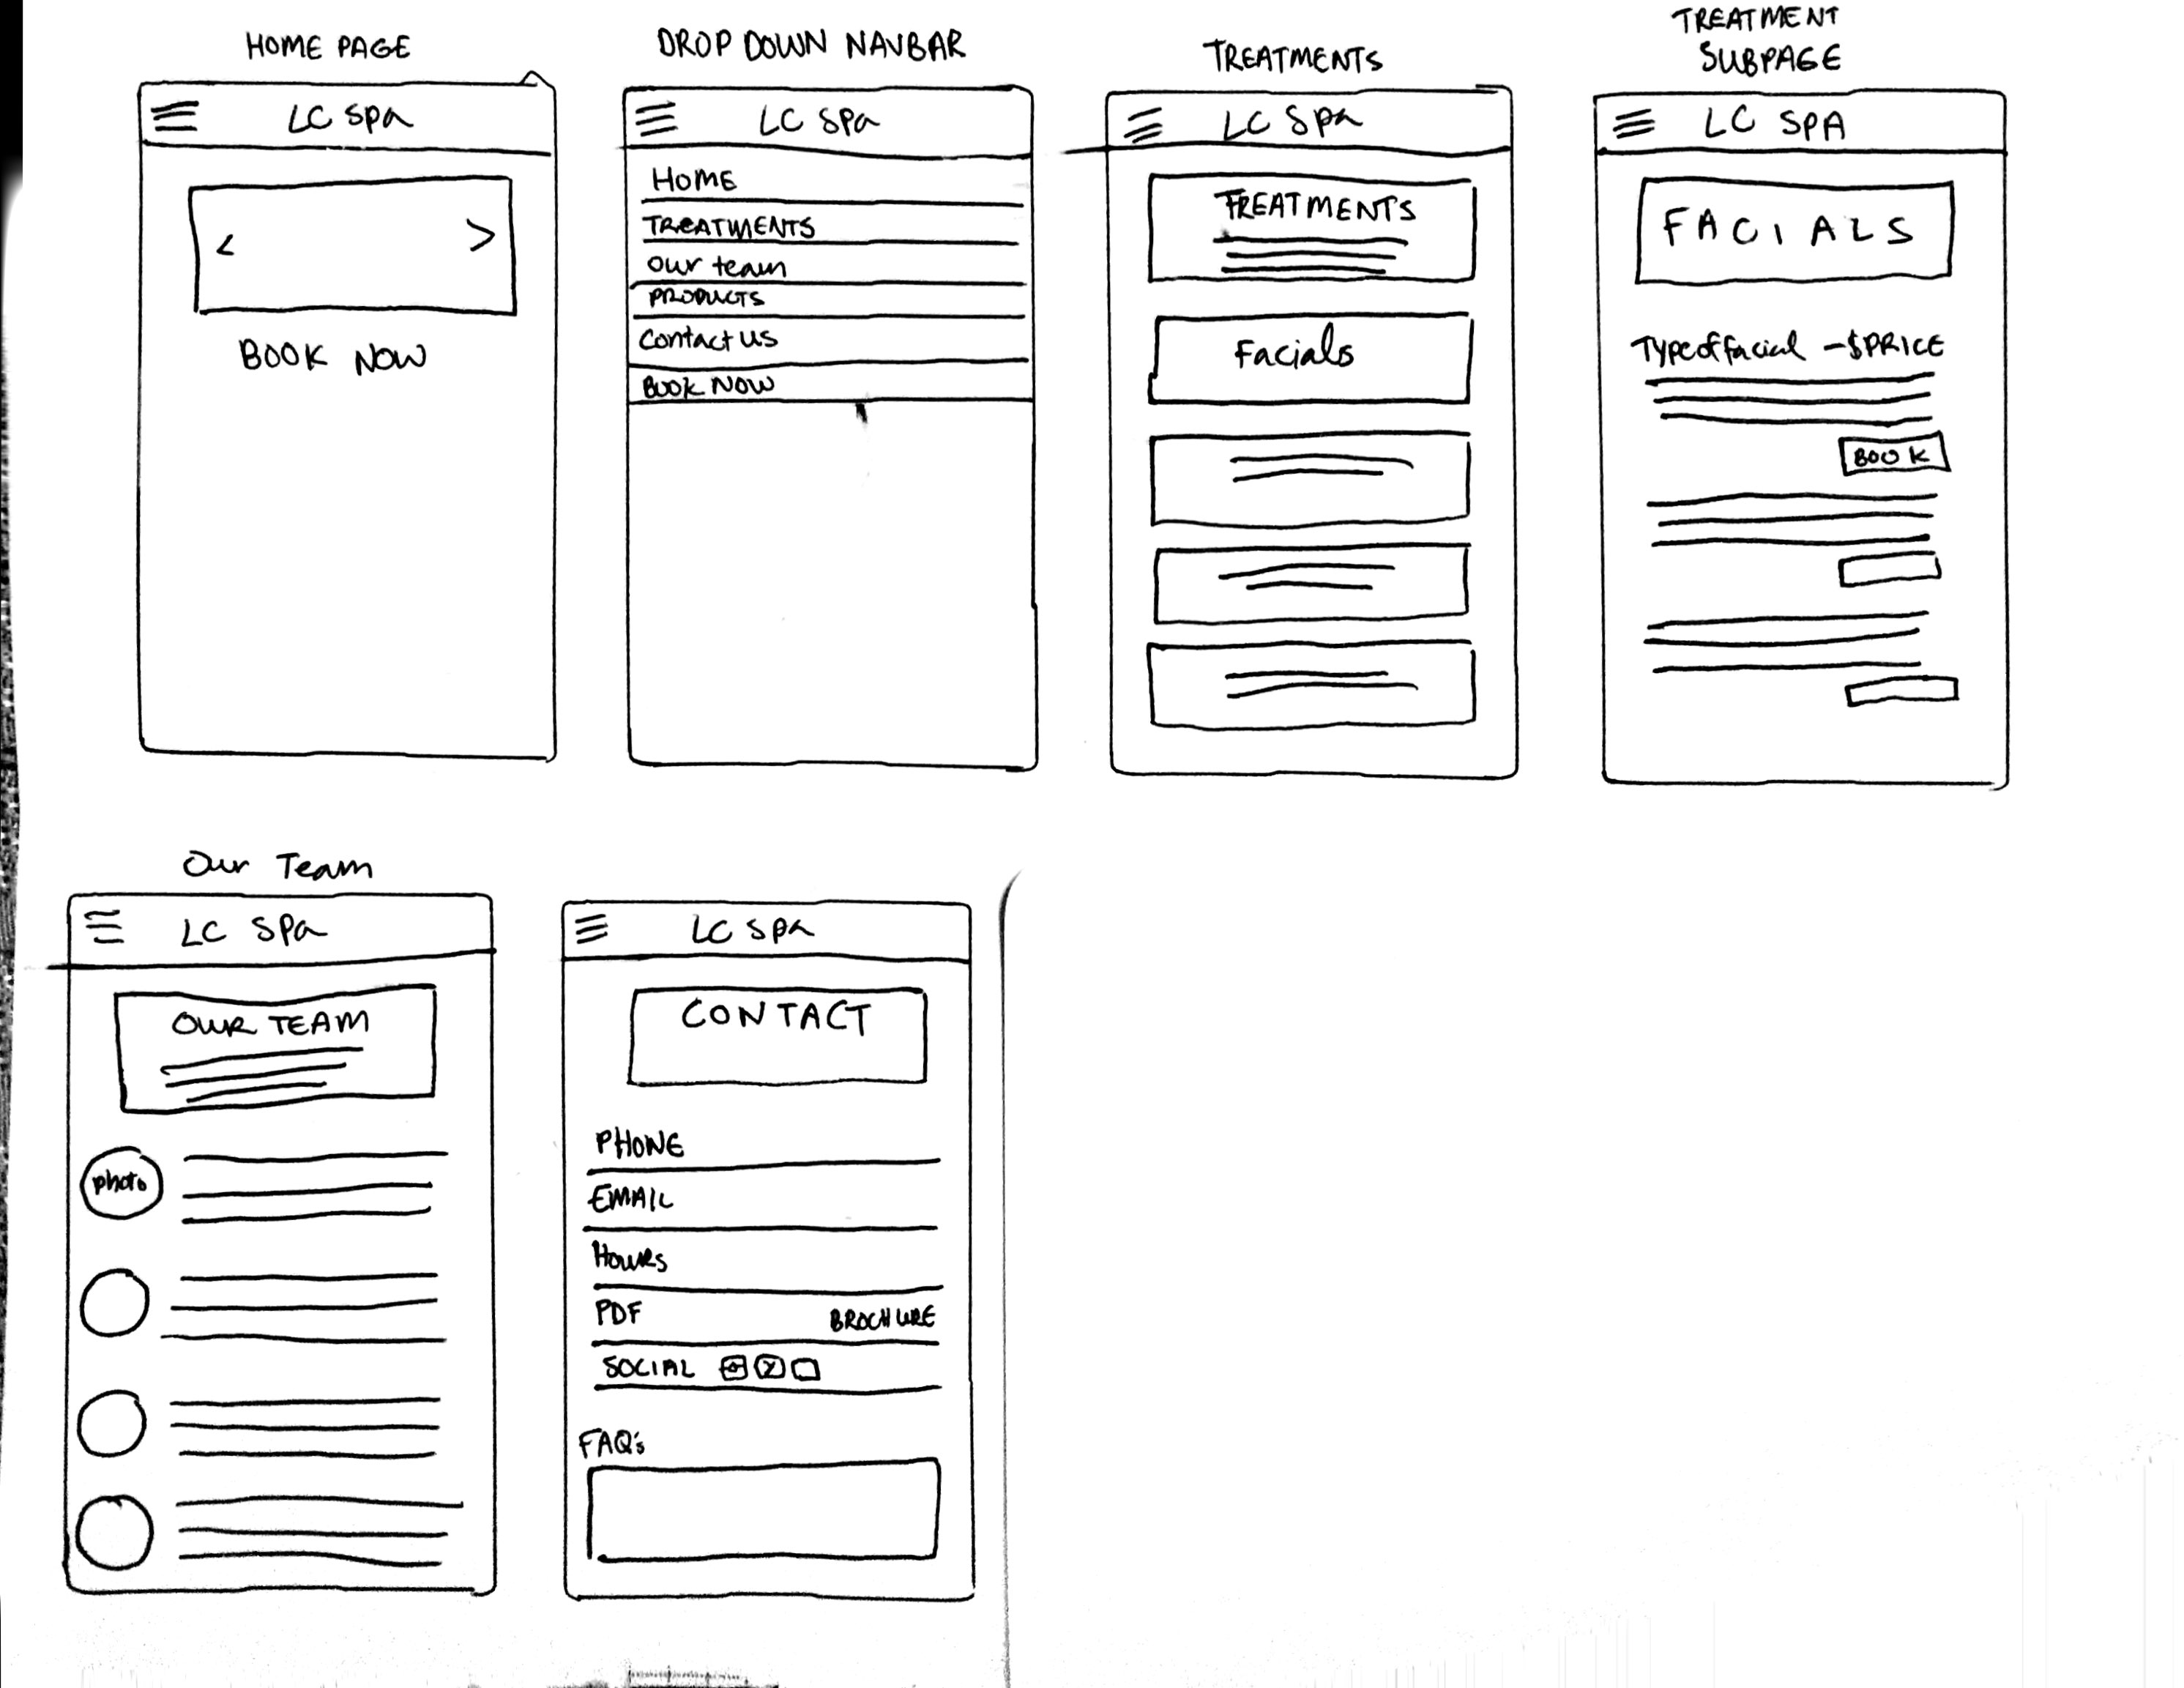 HOME PAGE
LC Spa
<
>
BOOK NOW
DROP DOWN NAVBAR
LC Spa
HOME
TREATMENTS
Our team
PRODUCTS
Contact us
BOOK NOW
TREATMENTS
LC Spa
TREATMENTS
Facials
TREATMENT
SUBPAGE
LC SPA
FACIALS
Type of facial - $PRICE
BOOK
Our Team
LC Spa
OUR TEAM
photo
LC Spa
CONTACT
PHONE
EMAIL
Hours
PDF BROCHURE
SOCIAL
FAQ's